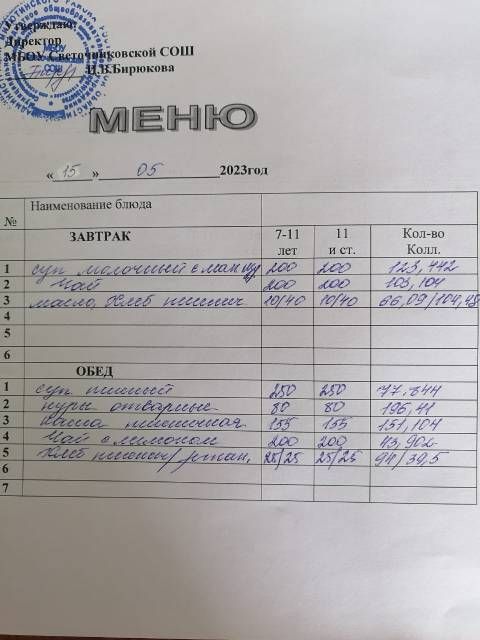 Утверждаю:
Директор
МБОУ Светочниковской СОШ
Н.В.Бирюкова
МЕНЮ
« 15 » 05 2023год
№ Наименование блюда
ЗАВТРАК 7-11 лет 11 и ст. Кол-во Колл.
1 суп молочный с мак 200 200 123,442
2 Чай 200 200 103,104
3 масло, хлеб пшенич 10/40 10/40 66,09/104,48
4
5
6
ОБЕД
1 суп пшеный 250 250 77.844
2 куры отварные 80 80 196,41
3 каша пшеничная 155 155 151,104
4 Чай с лимоном 200 200 43,902
5 Хлеб пшенич/ ржан. 25/25 25/25 94/39,5
6
7